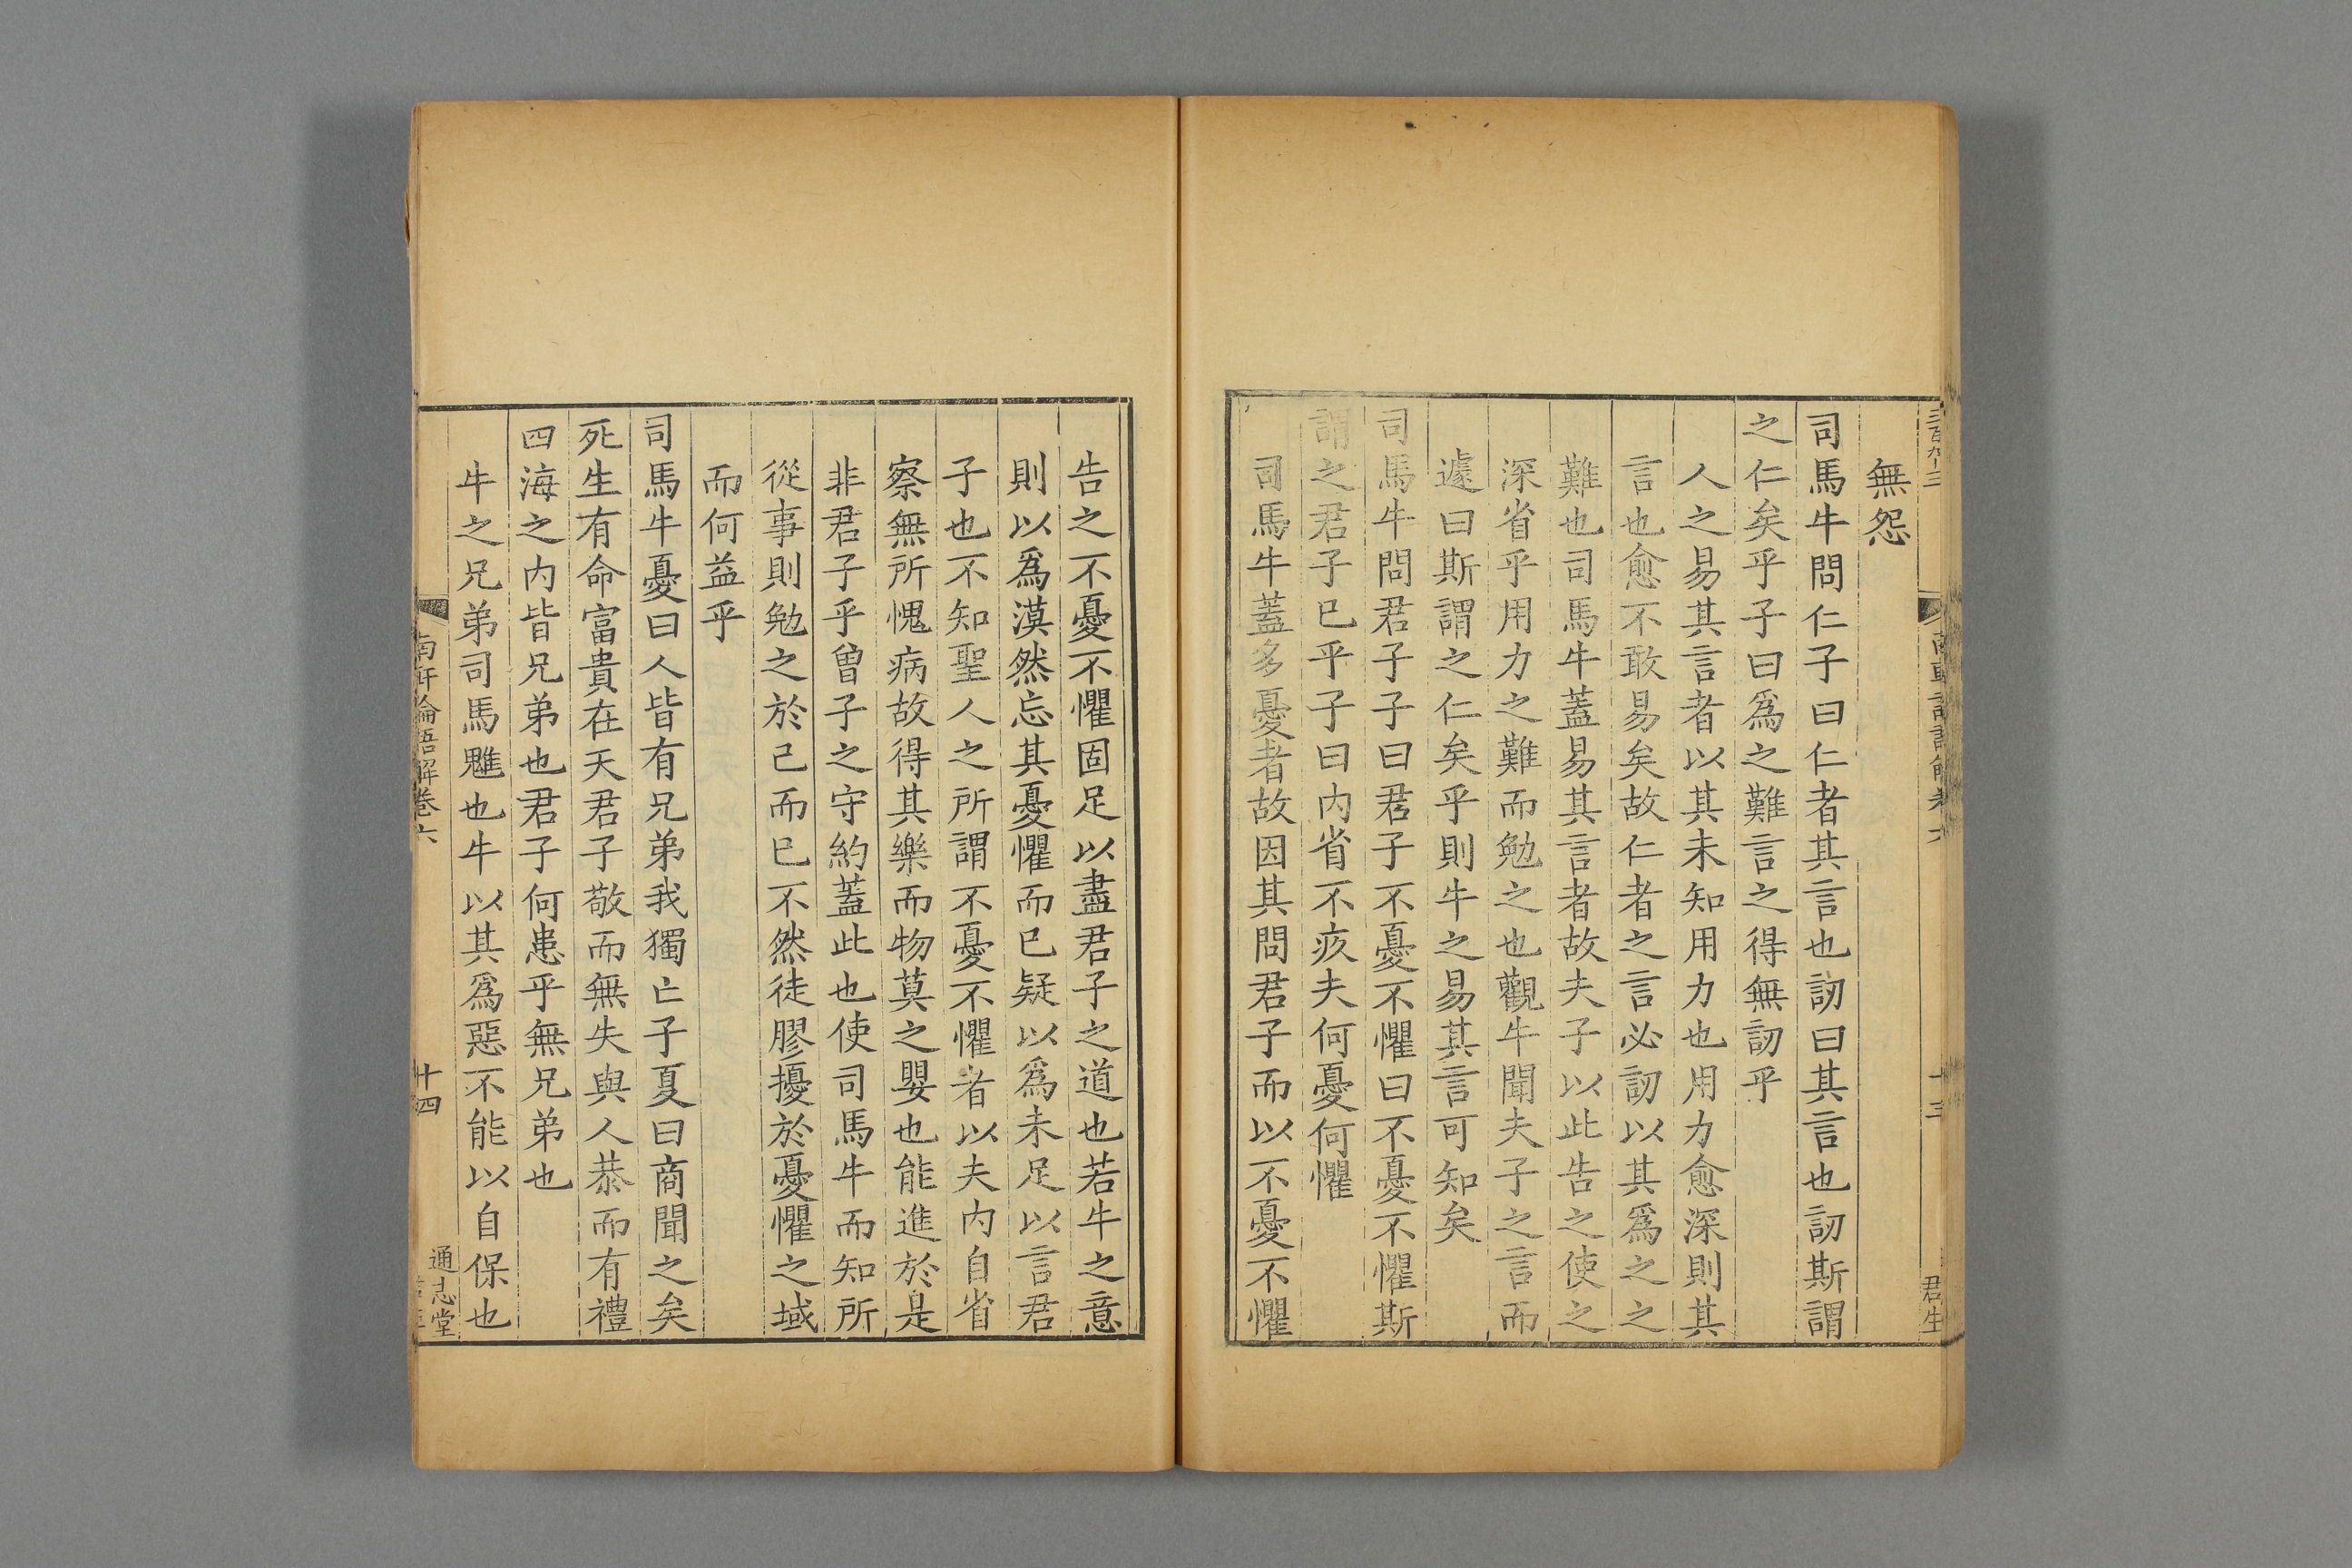 無怨
司馬牛問仁子曰仁者其言也訒曰其言也訒斯謂
之仁矣乎子曰爲之難言之得無訒乎
人之易其言者以其未知用力也用力愈深則其
言也愈不敢易矣故仁者之言必訒以其爲之之
難也司馬牛蓋易其言者故夫子以此告之使之
深省乎用力之難而勉之也觀牛聞夫子之言而
遽曰斯謂之仁矣乎則牛之易其言可知矣
司馬牛問君子子曰君子不憂不懼曰不憂不懼斯
謂之君子已乎子曰内省不疚夫何憂何懼
司馬牛蓋多憂者故因其問君子而以不憂不懼
告之不憂不懼固足以盡君子之道也若牛之意
則以爲漠然忘其憂懼而已疑以爲未足以言君
子也不知聖人之所謂不憂不懼者以夫内自省
察無所愧病故得其樂而物莫之嬰也能進於是
非君子乎曾子之守約蓋此也使司馬牛而知所
從事則勉之於己而已不然徒膠擾於憂懼之域
而何益乎
司馬牛憂曰人皆有兄弟我獨亡子夏曰商聞之矣
死生有命富貴在天君子敬而無失與人恭而有禮
四海之内皆兄弟也君子何患乎無兄弟也
牛之兄弟司馬魋也牛以其爲惡不能以自保也
南軒論語解卷六
十四
通志堂